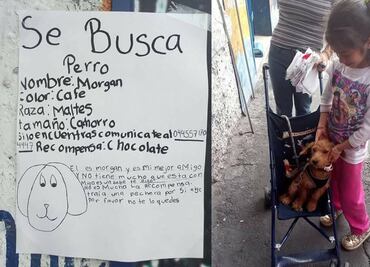 Se Busca
Perro
Nombre: Morgan
Color: Cafe
Raza: Maltes
tamaño: Cachorro
Si lo encuentras comunicate al
Recompensa: Chocolate
El es morgan y es mi mejor aMigo
Y No tiene mucho que esta con
no es Mucha la recompensa.
traia una pechera por si algo
por favor no te lo quedes